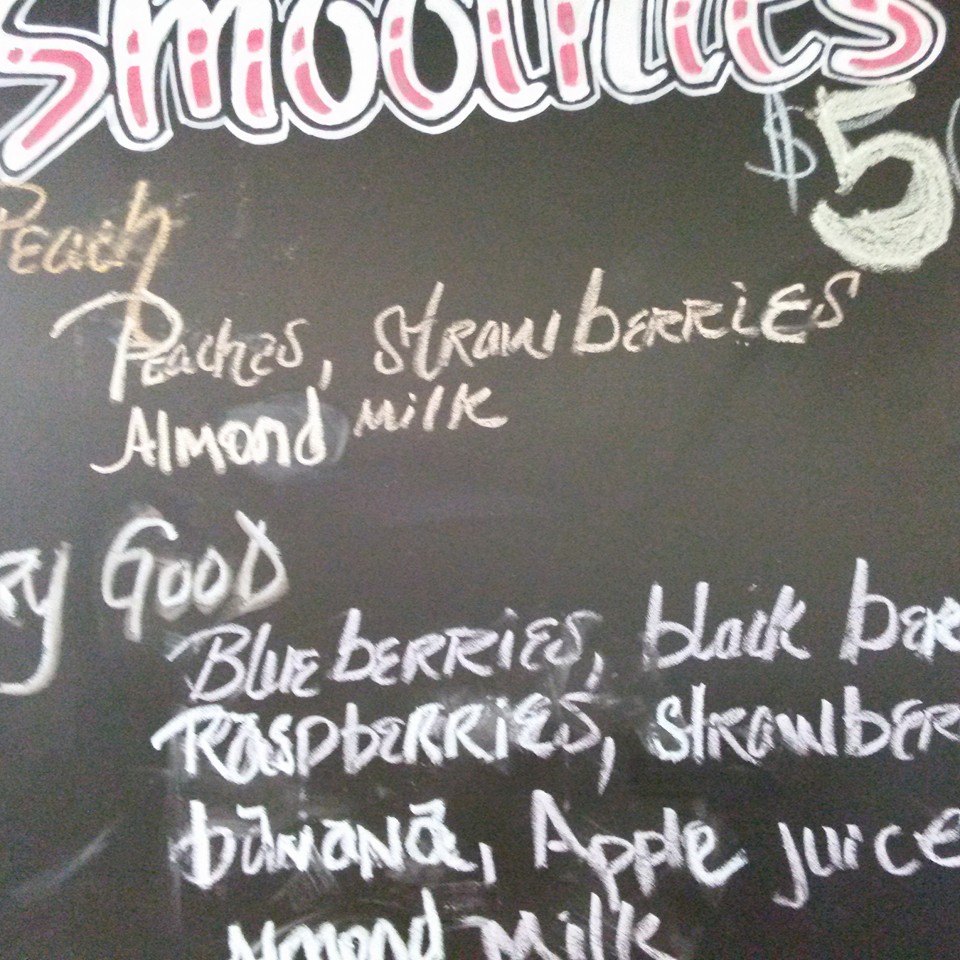 Smoothies
$5
Peach
Peaches, strawberries
Almond milk
ry Good
Blueberries, black ber
Raspberries, strawber
banana, Apple juice
Almond milk